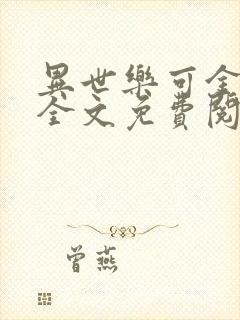 異世樂可全
全文免費閱
曾燕